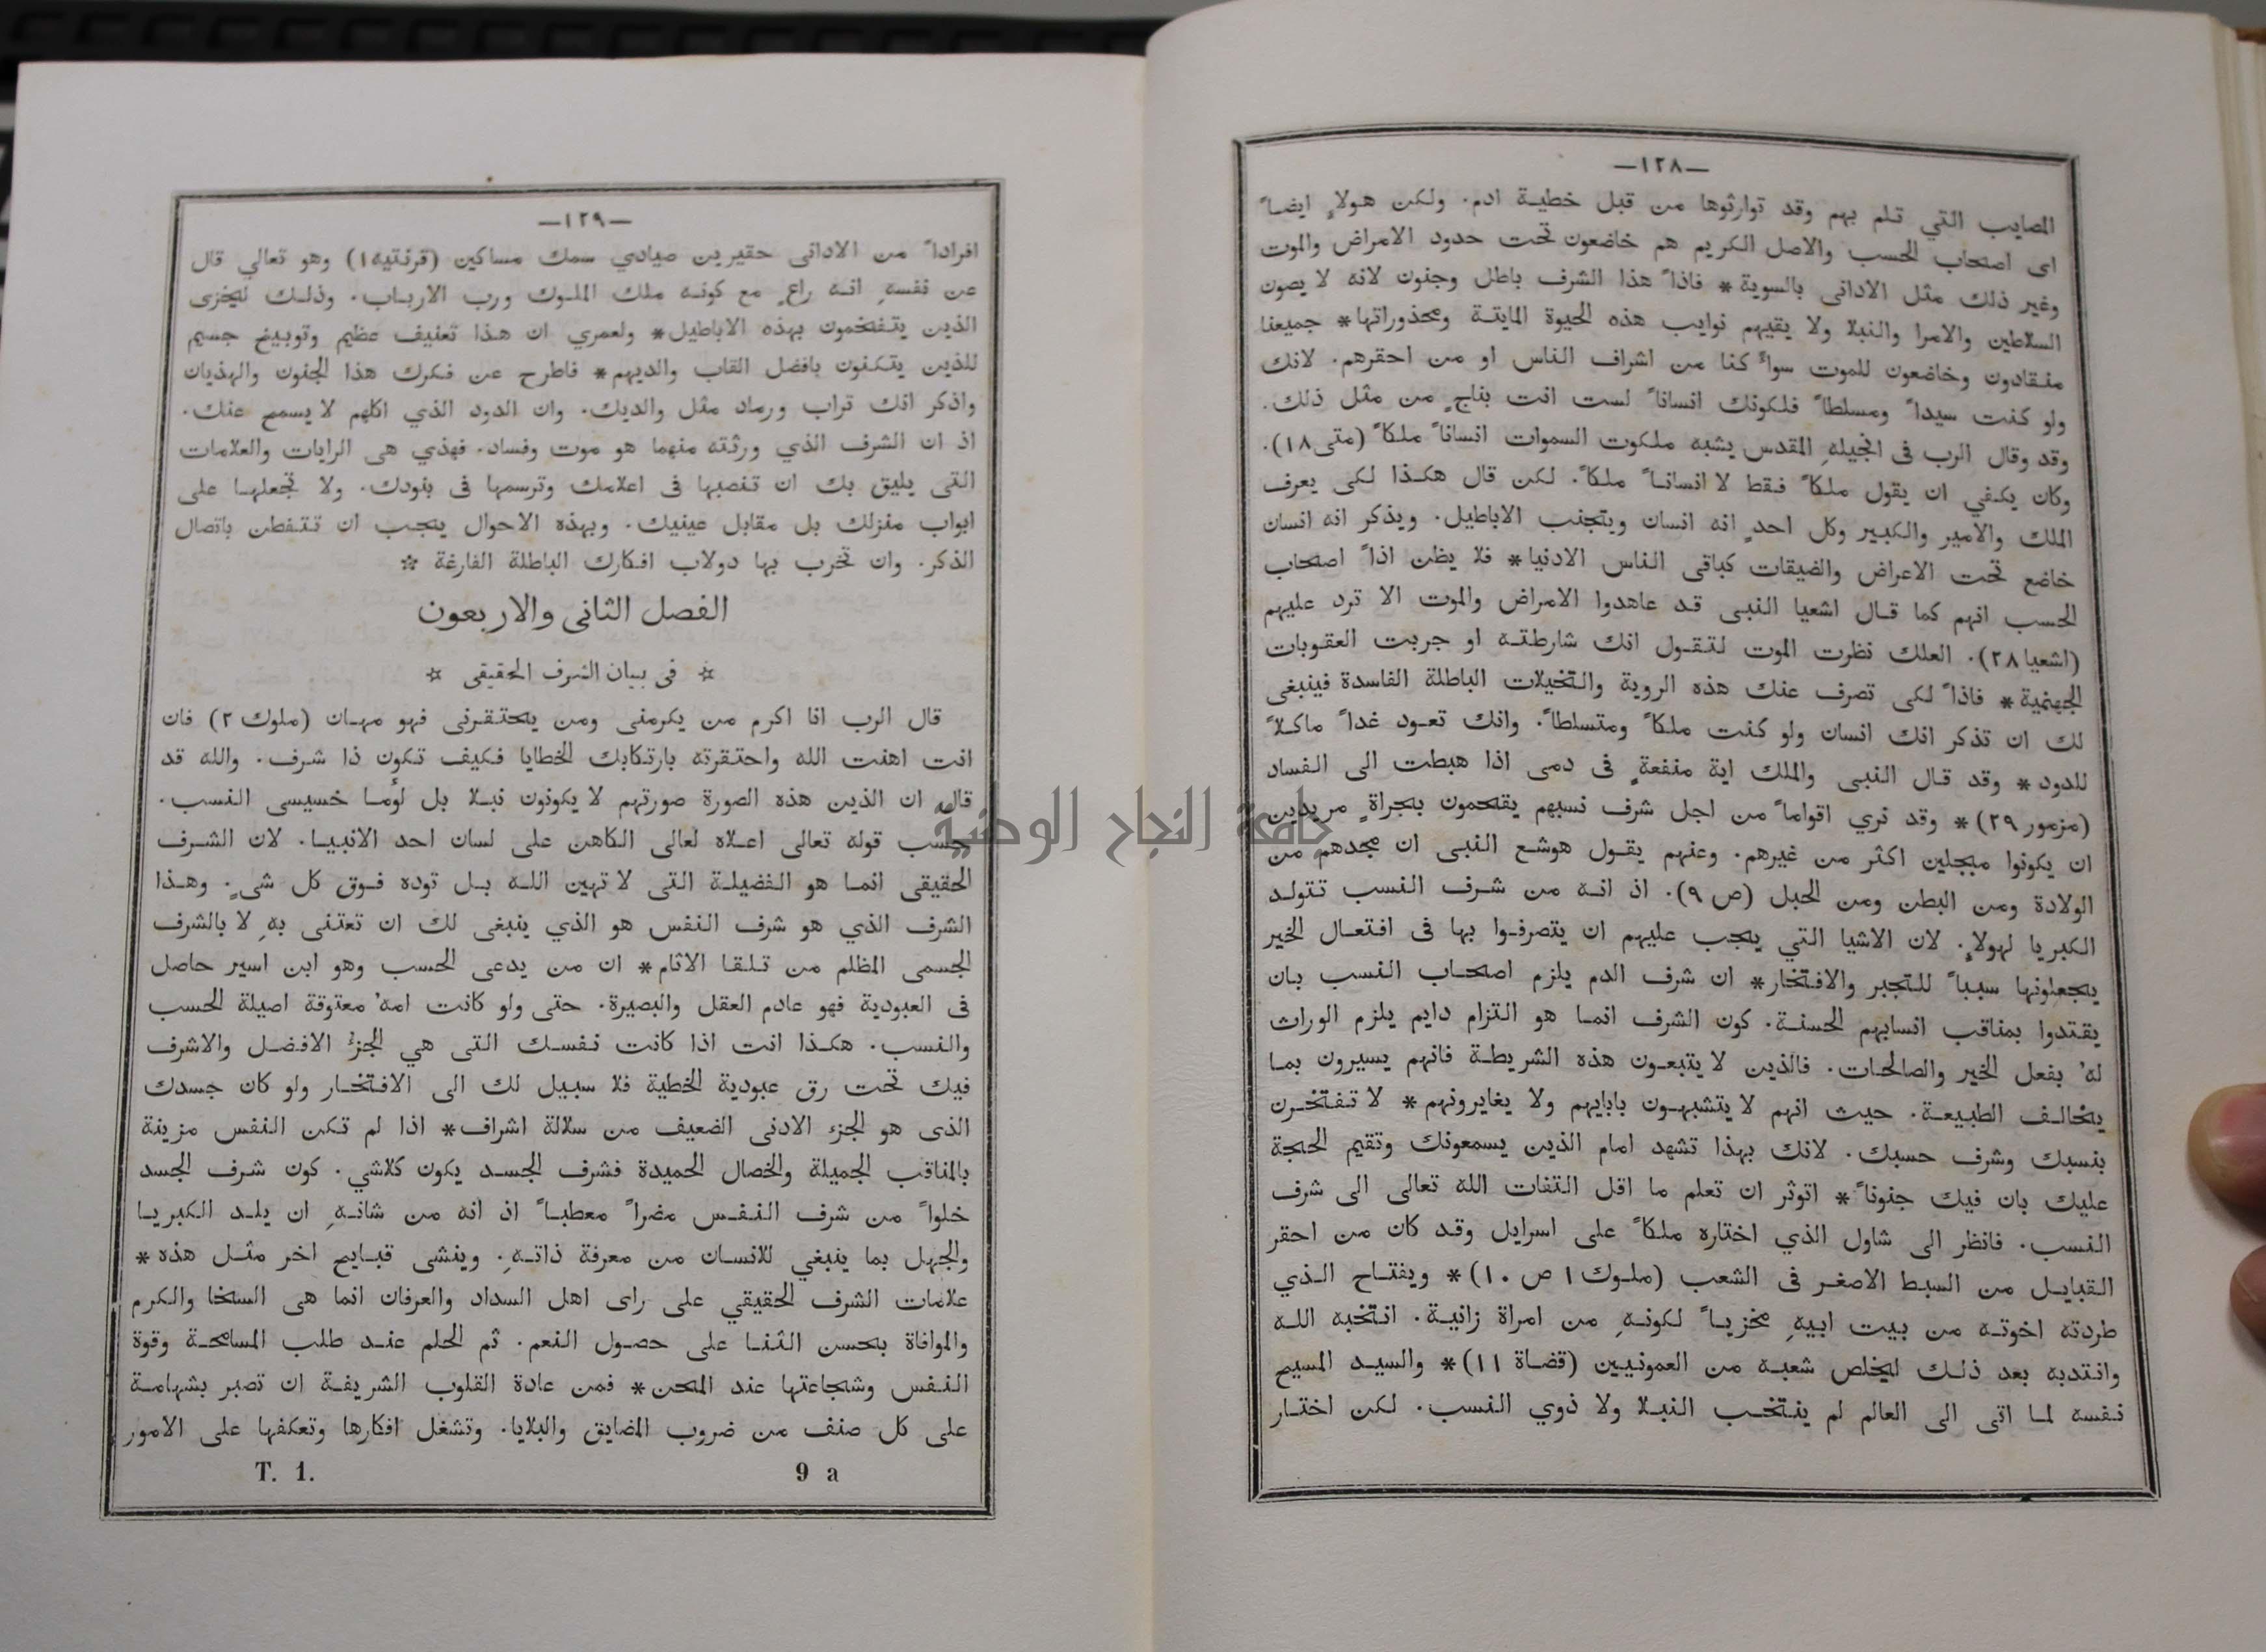 —١٢٨—
المصايب التي تلم بهم وقد توارثوها من قبل خطية ادم. ولكن هولاءِ ايضاً
اى اصحاب الحسب والاصل الكريم هم خاضعون تحت حدود الامراض والموت
وغير ذلك مثل الادانى بالسوية* فاذاً هذا الشرف باطل وجنون لانه لا يصون
السلاطين والامرا والنبلا ولا يقيهم نوايب هذه الحيوة المايتة ومحذوراتها* جميعنا
منقادون وخاضعون للموت سواءً كنا من اشراف الناس او من احقرهم. لانك
ولو كنت سيداً ومسلطاً فلكونك انساناً لست انت بناجٍ من مثل ذلك.
وقد وقال الرب فى انجيلهِ المقدس يشبه ملكوت السموات انساناً ملكاً (متى ١٨).
وكان يكفي ان يقول ملكاً فقط لا انساناً ملكاً. لكن قال هكذا لكى يعرف
الملك والامير والكبير وكل احدٍ انه انسان ويتجنب الاباطيل. ويذكر انه انسان
خاضع تحت الاعراض والضيقات كباقى الناس الادنيا* فلا يظن اذاً اصحاب
الحسب انهم كما قال اشعيا النبى قد عاهدوا الامراض والموت الا ترد عليهم
(اشعيا ٢٨). العلك نظرت الموت لتقول انك شارطته او جربت العقوبات
الجهنمية* فاذاً لكى تصرف عنك هذه الروية والتخيلات الباطلة الفاسدة فينبغى
لك ان تذكر انك انسان ولو كنت ملكاً ومتسلطاً. وانك تعود غداً ماكلاً
للدود* وقد قال النبى والملك اية منفعةٍ فى دمى اذا هبطت الى الفساد
(مزمور ٢٩)* وقد نري اقواماً من اجل شرف نسبهم يقتحمون بجراةٍ مريدين
ان يكونوا مبجلين اكثر من غيرهم. وعنهم يقول هوشع النبى ان مجدهم من
الولادة ومن البطن ومن الحبل (ص ٩). اذ انه من شرف النسب تتولد
الكبريا لهولاءِ. لان الاشيا التي يجب عليهم ان يتصرفوا بها فى افتعال الخير
يجعلونها سبباً للتجبر والافتخار* ان شرف الدم يلزم اصحاب النسب بان
يقتدوا بمناقب انسابهم الحسنة. كون الشرف انما هو التزام دايم يلزم الوراث
لهُ بفعل الخير والصالحات. فالذين لا يتبعون هذه الشريطة فانهم يسيرون بما
يخالف الطبيعة. حيث انهم لا يتشبهون بابايهم ولا يغايرونهم* لا تفتخرن
بنسبك وشرف حسبك. لانك بهذا تشهد امام الذين يسمعونك وتقيم الحجة
عليك بان فيك جنوناً* اتوثر ان تعلم ما اقل التفات الله تعالى الى شرف
النسب. فانظر الى شاول الذي اختاره ملكاً على اسرايل وقد كان من احقر
القبايل من السبط الاصغر فى الشعب (ملوك ١ ص ١٠)* ويفتاح الذي
طردته اخوته من بيت ابيهِ مخزياً لكونهِ من امراة زانية. انتخبه الله
وانتدبه بعد ذلك ليخلص شعبه من العمونيين (قضاة ١١)* والسيد المسيح
نفسه لما اتى الى العالم لم ينتخب النبلا ولا ذوي النسب. لكن اختار
—١٢٩—
افراداً من الادانى حقيرين صيادي سمك مساكين (قرنتيه ١) وهو تعالي قال
عن نفسهِ انه راعٍ مع كونه ملك الملوك ورب الارباب. وذلك ليخزى
الذين يتفخمون بهذه الاباطيل* ولعمري ان هذا تعنيف عظيم وتوبيخ جسيم
للذين يتكنون بافضل القاب والديهم* فاطرح عن فكرك هذا الجنون والهذيان
واذكر انك تراب ورماد مثل والديك. وان الدود الذي اكلهم لا يسمع عنك.
اذ ان الشرف الذي ورثته منهما هو موت وفساد. فهذي هى الرايات والعلامات
التى يليق بك ان تنصبها فى اعلامك وترسمها فى بنودك. ولا تجعلها على
ابواب منزلك بل مقابل عينيك. وبهذه الاحوال يجب ان تتفطن باتصال
الذكر. وان تخرب بها دولاب افكارك الباطلة الفارغة *
الفصل الثانى والاربعون
* فى بيان الشرف الحقيقى *
قال الرب انا اكرم من يكرمنى ومن يحتقرنى فهو مهان (ملوك ٢) فان
انت اهنت الله واحتقرته بارتكابك الخطايا فكيف تكون ذا شرف. والله قد
قال ان الذين هذه الصورة صورتهم لا يكونون نبلا بل لوُما خسيسى النسب.
حسب قوله تعالى اعلاه لعالى الكاهن على لسان احد الانبيا. لان الشرف
الحقيقى انما هو الفضيلة التى لا تهين الله بل توده فوق كل شىءٍ. وهذا
الشرف الذي هو شرف النفس هو الذي ينبغى لك ان تعتنى بهِ لا بالشرف
الجسمى المظلم من تلقا الاثام* ان من يدعى الحسب وهو ابن اسير حاصل
فى العبودية فهو عادم العقل والبصيرة. حتى ولو كانت امهُ معتوقة اصيلة الحسب
والنسب. هكذا انت اذا كانت نفسك التى هي الجزءُ الافضل والاشرف
فيك تحت رق عبودية الخطية فلا سبيل لك الى الافتخار ولو كان جسدك
الذى هو الجزء الادنى الضعيف من سلالة اشراف* اذا لم تكن النفس مزينة
بالمناقب الجميلة والخصال الحميدة فشرف الجسد يكون كلاشي. كون شرف الجسد
خلواً من شرف النفس مضراً معطباً اذ انه من شانهِ ان يلد الكبريا
والجهل بما ينبغي للانسان من معرفة ذاتهِ. وينشى قبايح اخر مثل هذه*
علامات الشرف الحقيقي على راى اهل السداد والعرفان انما هى السخا والكرم
والموافاة بحسن الثنا على حصول النعم. ثم الحلم عند طلب المسامحة وقوة
النفس وشجاعتها عند المحن* فمن عادة القلوب الشريفة ان تصبر بشهامة
على كل صنف من ضروب المضايق والبلايا. وتشغل افكارها وتعكفها على الامور
T. 1. 9 a
جامعة النجاح الوطنية